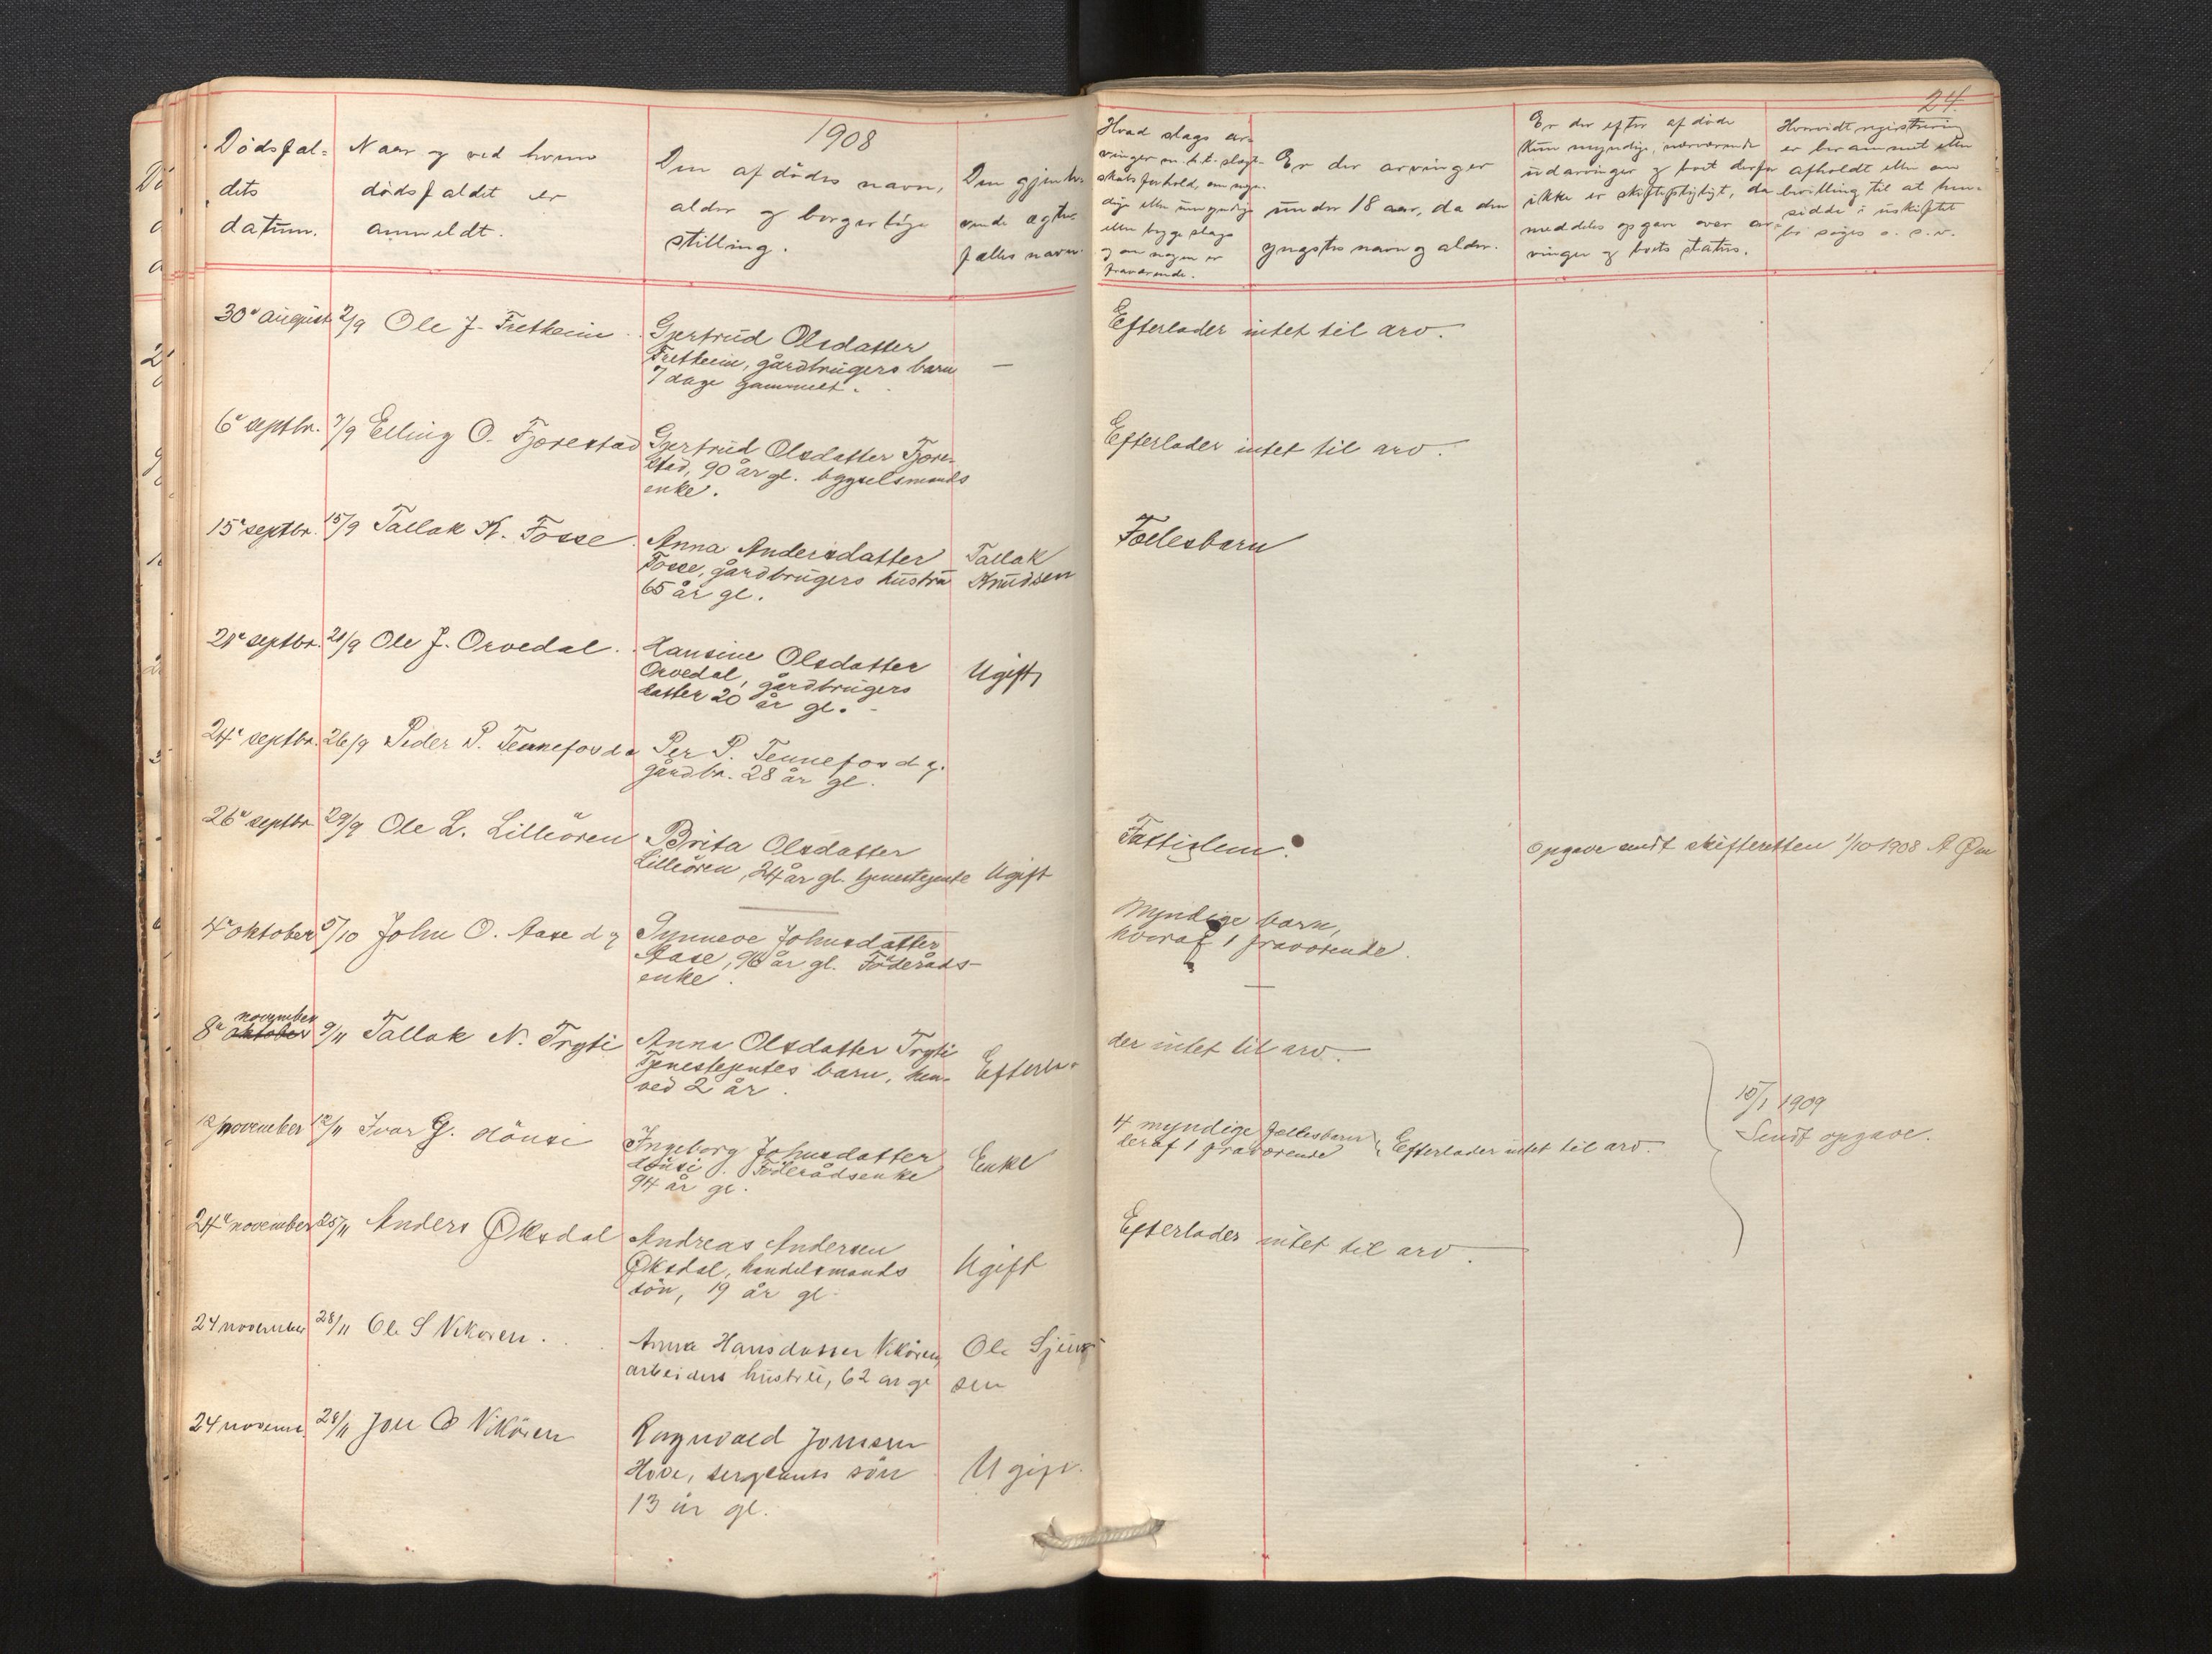 1908
24.
Dødsfal-
dets
datum.
Naar og ved hvem
dødsfaldet er
anmeldt.
Den afdødes navn,
alder og borgerlige
stilling.
Den gjenle-
vende ægte-
fælles navn.
Hvad slags ar-
vinger m. h. t. slægt-
skabsforhold, om myn-
dige eller umyndige
eller begge slags
og om nogen er
fraværende.
Er der arvinger
under 18 aar, da den
yngstes navn og alder.
Er der efter afdøde
kun myndige, nærværende
udarvinger og boet derfor
ikke er skiftepligtigt, da
meddeles opgave over ar-
vinger og boets status.
Hvorvidt registrering
er berammet eller
afholdt eller om
bevilling til at hen-
sidde i uskiftet
bo søges o. s. v.
30te august 2/9 Ole J. Fretheim. Gjertrud Olsdatter
Fretheim, gårdbrugers barn
7 dage gammelt. —
Efterlader intet til arv.
6te septbr. 7/9 Elling O. Fjørestad Gjertrud Olsdatter Fjøre-
stad, 90 år gl. bygselmands
enke.
Efterlader intet til arv.
15de septbr. 15/9 Tallak K. Fosse. Anna Andersdatter Tallak
Fosse, gårdbrugers hustru Knudsen
65 år gl.
Fællesbarn
21de septbr. 21/9 Ole J. Orvedal. Hansine Olsdatter
Orvedal, gårdbrugers Ugift,
datter 20 år gl.
24de septbr. 26/9 Peder P. Tennefos d e Per P. Tennefos d y.
gårdbr. 28 år gl.
26de septbr 29/9 Ole L. Lilleören Brita Olsdatter
Lilleören, 24 år gl. tjenestejente Ugift
Fattiglem.
Opgave sendt skifteretten 1/10 1908 A Øen
4de oktober 5/10 John O. Aase d y Synneve Johnsdatter
Aase, 96 år gl. Föderåds-
enke.
Myndige barn,
hvoraf 1 fraværende.
8de oktober november 9/11 Tallak N. Trygti Anna Olsdatter Trygti
Tjenestejentes barn, hen- Efterla-
ved 2 år.
der intet til arv.
12/november 12/11 Ivar G. Hönsi Ingeborg Johnsdatter
Hönsi. Föderådsenke Enke
94 år gl.
4 myndige fællesbarn
deraf 1 fraværende Efterlader intet til arv.
10/1 1909
Sendt opgave.
24de november 25/11 Anders Øksdal Andreas Andersen
Øksdal, handelsmands Ugift
sön, 19 år gl.
Efterlader intet til arv.
24 november 28/11 Ole S Vikören. Anna Hansdatter Vikören, Ole Sjur-
arbeiders hustru, 62 år gl sen
24 novemr. 28/11 Jon O Vikören Ragnvald Jonsen
Hove, sergeants sön Ugift.
13 år gl.